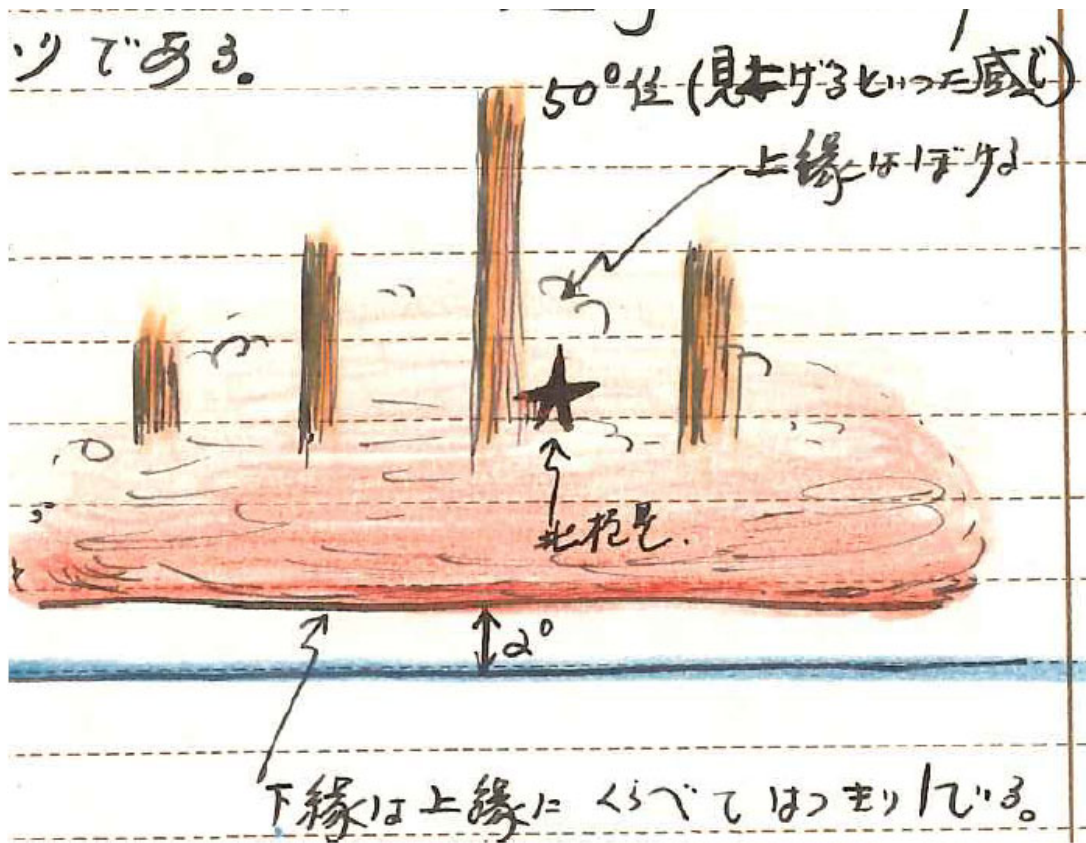 りである。
50°位(見上げるといった感じ)
上縁はぼける
北極星.
2°
下縁は上縁にくらべてはっきりしている。